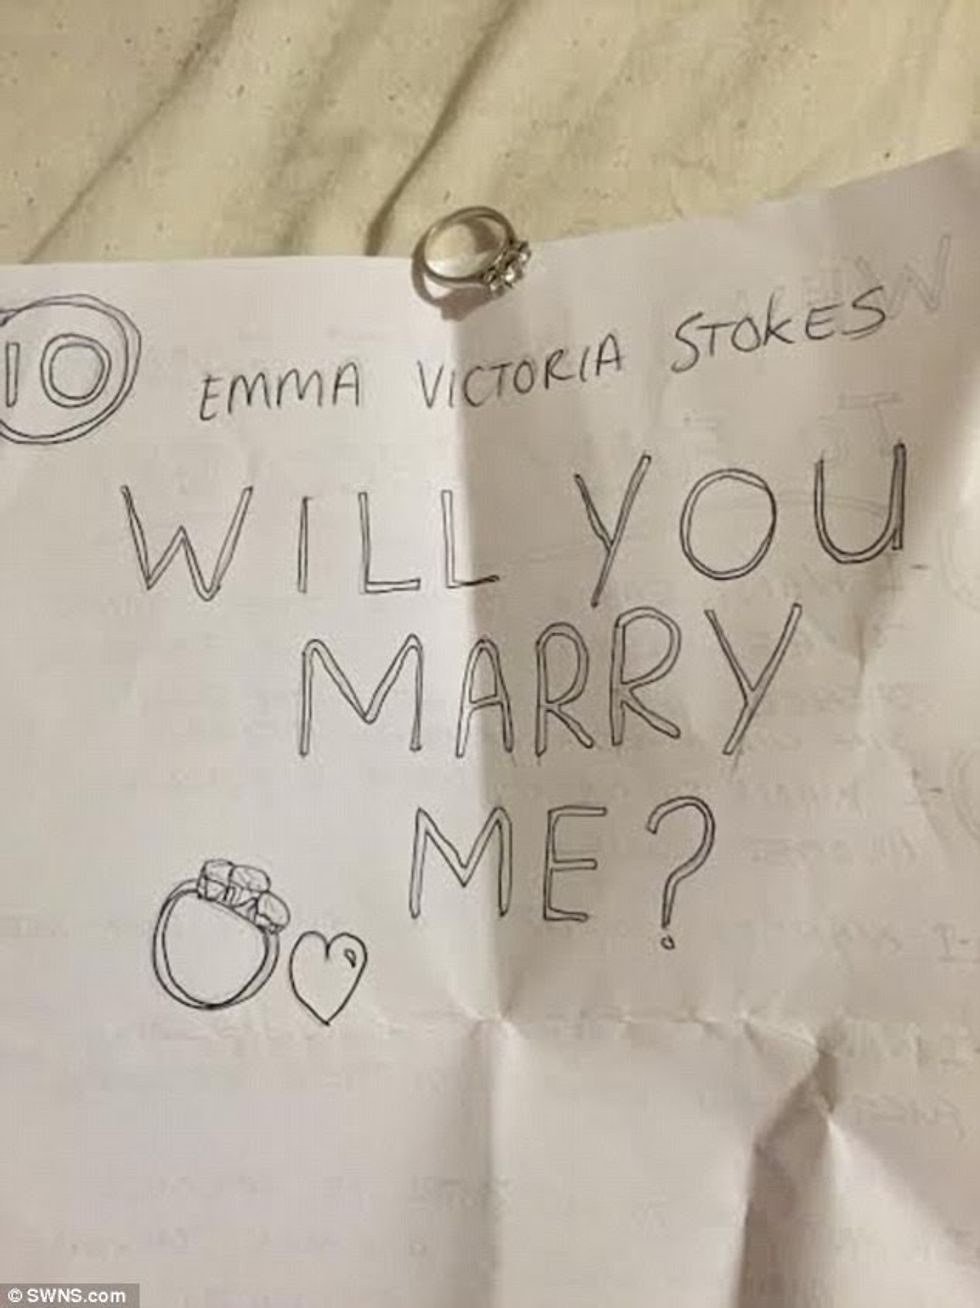 10 EMMA VICTORIA STOKES
WILL YOU
MARRY
ME?
© SWNS.com